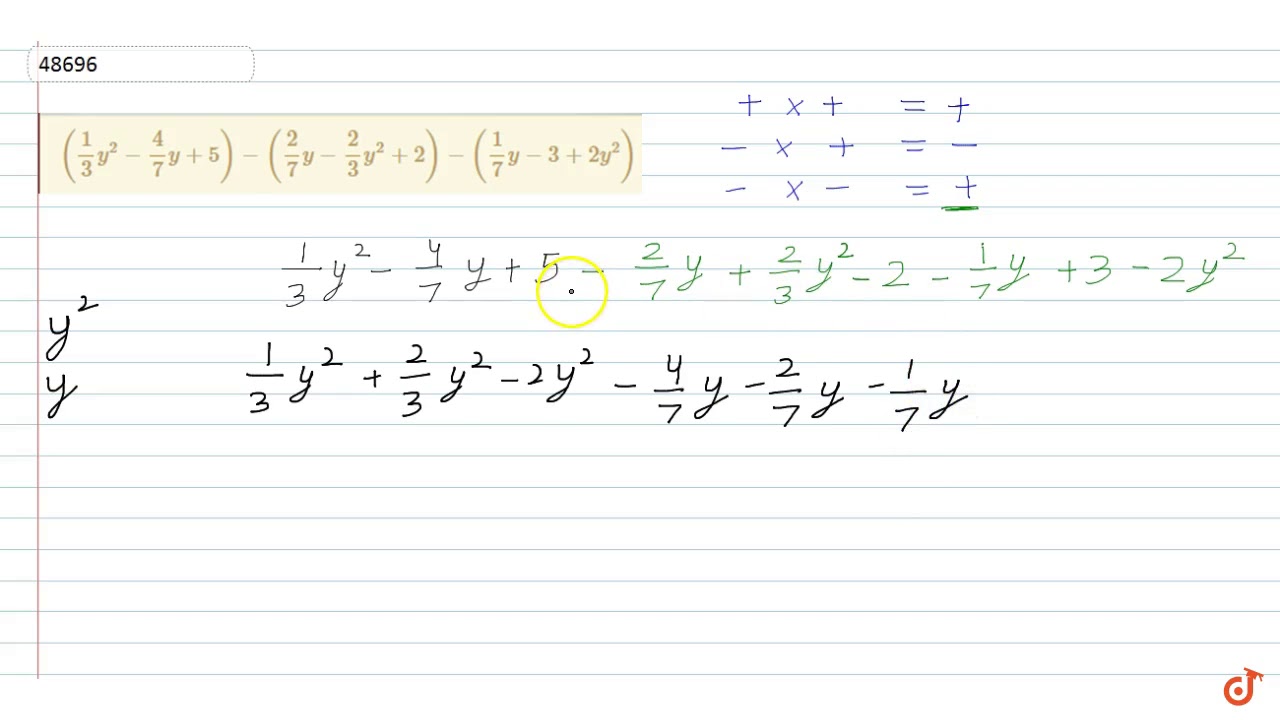 48696
(1/3 y² − 4/7 y + 5) − (2/7 y − 2/3 y² + 2) − (1/7 y − 3 + 2y²)
+ x + = +
− x + = −
− x − = +
1/3 y² − 4/7 y + 5 − 2/7 y + 2/3 y² − 2 − 1/7 y + 3 − 2y²
y²
y
1/3 y² + 2/3 y² − 2y² − 4/7 y − 2/7 y − 1/7 y